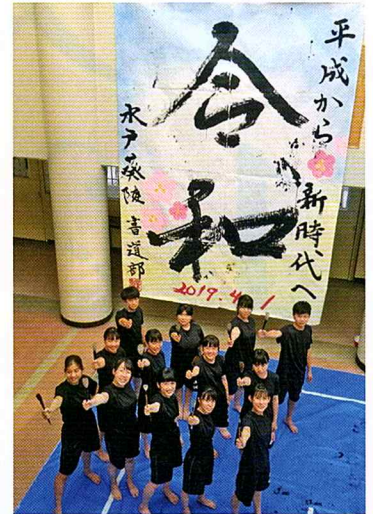 平成から新時代へ
令和
水戸葵陵 書道部
2019.4.1